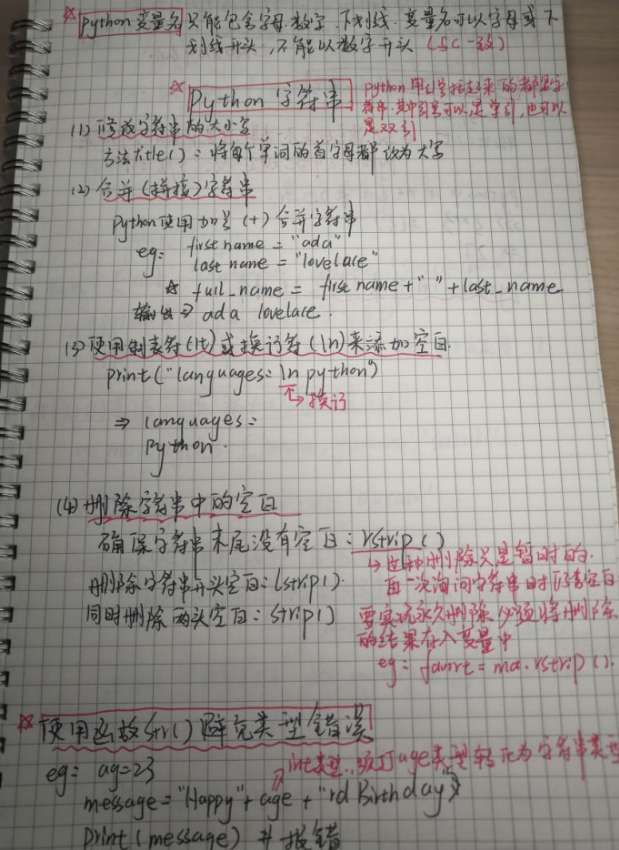 Python变量名只能包含字母、数字、下划线。变量名可以字母或下
划线开头,不能以数字开头(与C一致)
Python 字符串
python用引号括起来的都是字
符串,其中引号可以是单引,也可以
是双引
(1) 修改字符串的大小写
方法title():将每个单词的首字母都改为大写
(2) 合并(拼接)字符串
Python使用加号(+)合并字符串
eg: first name = "ada"
last name = "lovelace"
full_name = first name + " " + last_name
输出 ⇒ ada lovelace.
(3) 使用制表符(\t)或换行符(\n)来添加空白.
print("languages: \n python")
→换行
⇒ languages:
python.
(4) 删除字符串中的空白
确保字符串末尾没有空白: rstrip()
→这种删除只是暂时的.
再一次询问字符串时仍有空白
删除字符串开头空白: lstrip().
同时删除两头空白: strip()
要实现永久删除,必须将删除
的结果存入变量中
eg: favort = ma.rstrip().
使用函数str()避免类型错误
int类型,须将age类型转化为字符串类型
eg: ag=23
message = "Happy" + age + "rd Birthday"
Print(message) # 报错